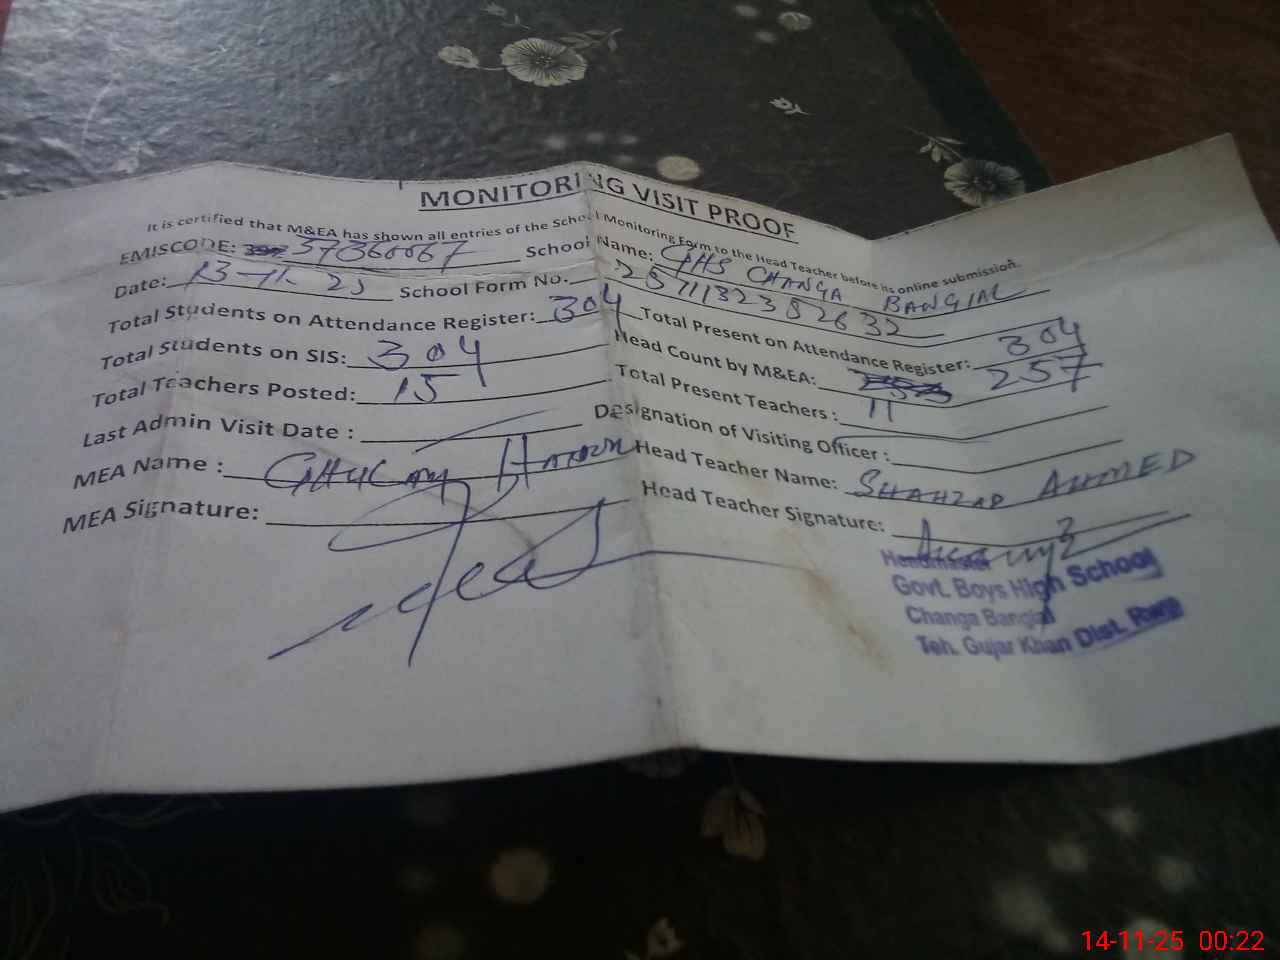 MONITORING VISIT PROOF
It is certified that M&EA has shown all entries of the School Monitoring Form to the Head Teacher before its online submission.
EMISCODE: 37360067 School Name: GHS CHANGA BANGIAL
Date: 13-11-25 School Form No. 2511132382632
Total Students on Attendance Register: 304 Total Present on Attendance Register: 304
Total Students on SIS: 304 Head Count by M&EA: 257
Total Teachers Posted: 15 Total Present Teachers : 11
Last Admin Visit Date : Designation of Visiting Officer :
MEA Name : Head Teacher Name: SHAHZAD AHMED
MEA Signature: Head Teacher Signature:
Headmaster
Govt. Boys High School
Changa Bangial
Teh. Gujar Khan Dist. Rwp
14-11-25 00:22